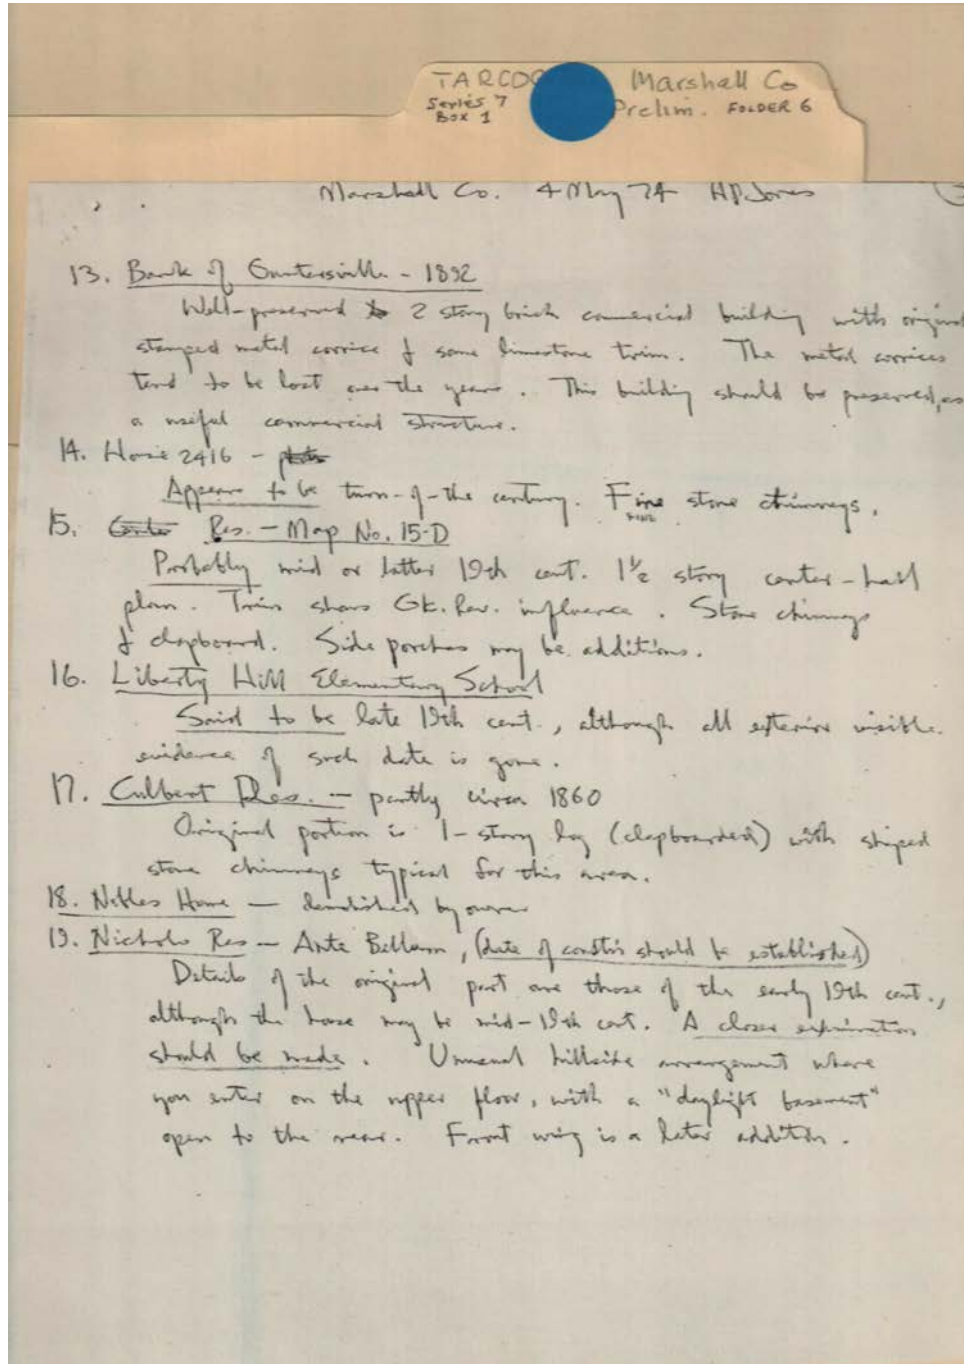 TARCOG Marshall Co
Series 7 Prelim. FOLDER 6
BOX 1
Marshall Co. 4 May 74 HP Jones
13. Bank of Guntersville - 1892
Well-preserved 2 story brick commercial building with origin
stamped metal cornice & some limestone trim. The metal cornices
tend to be lost over the years. This building should be preserved, as
a useful commercial structure.
14. House 2416 -
Appears to be turn-of-the century. Fine stone chimneys.
15. Res. - Map No. 15-D
Probably mid or latter 19th cent. 1½ story center-hall
plan. Trim shows Gk. Rev. influence. Stone chimneys
& clapboard. Side porches may be additions.
16. Liberty Hill Elementary School
Said to be late 19th cent., although all exterior visible
evidence of such date is gone.
17. Culbert Res. - partly circa 1860
Original portion is 1-story log (clapboarded) with shaped
stone chimneys typical for this area.
18. Nobles Home - demolished by owner
19. Nichols Res - Ante Bellum, (date of constr'n should be established)
Details of the original part are those of the early 19th cent.,
although the house may be mid-19th cent. A closer examination
should be made. Unusual hillside arrangement where
you enter on the upper floor, with a "daylight basement"
open to the rear. Front wing is a later addition.